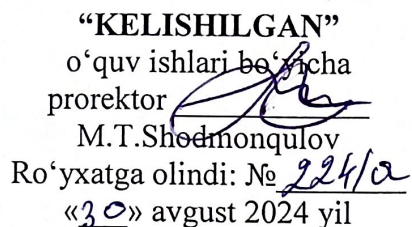 “KELISHILGAN”
o‘quv ishlari bo‘yicha
prorektor
M.T.Shodmonqulov
Ro‘yxatga olindi: № 224/a
«30» avgust 2024 yil